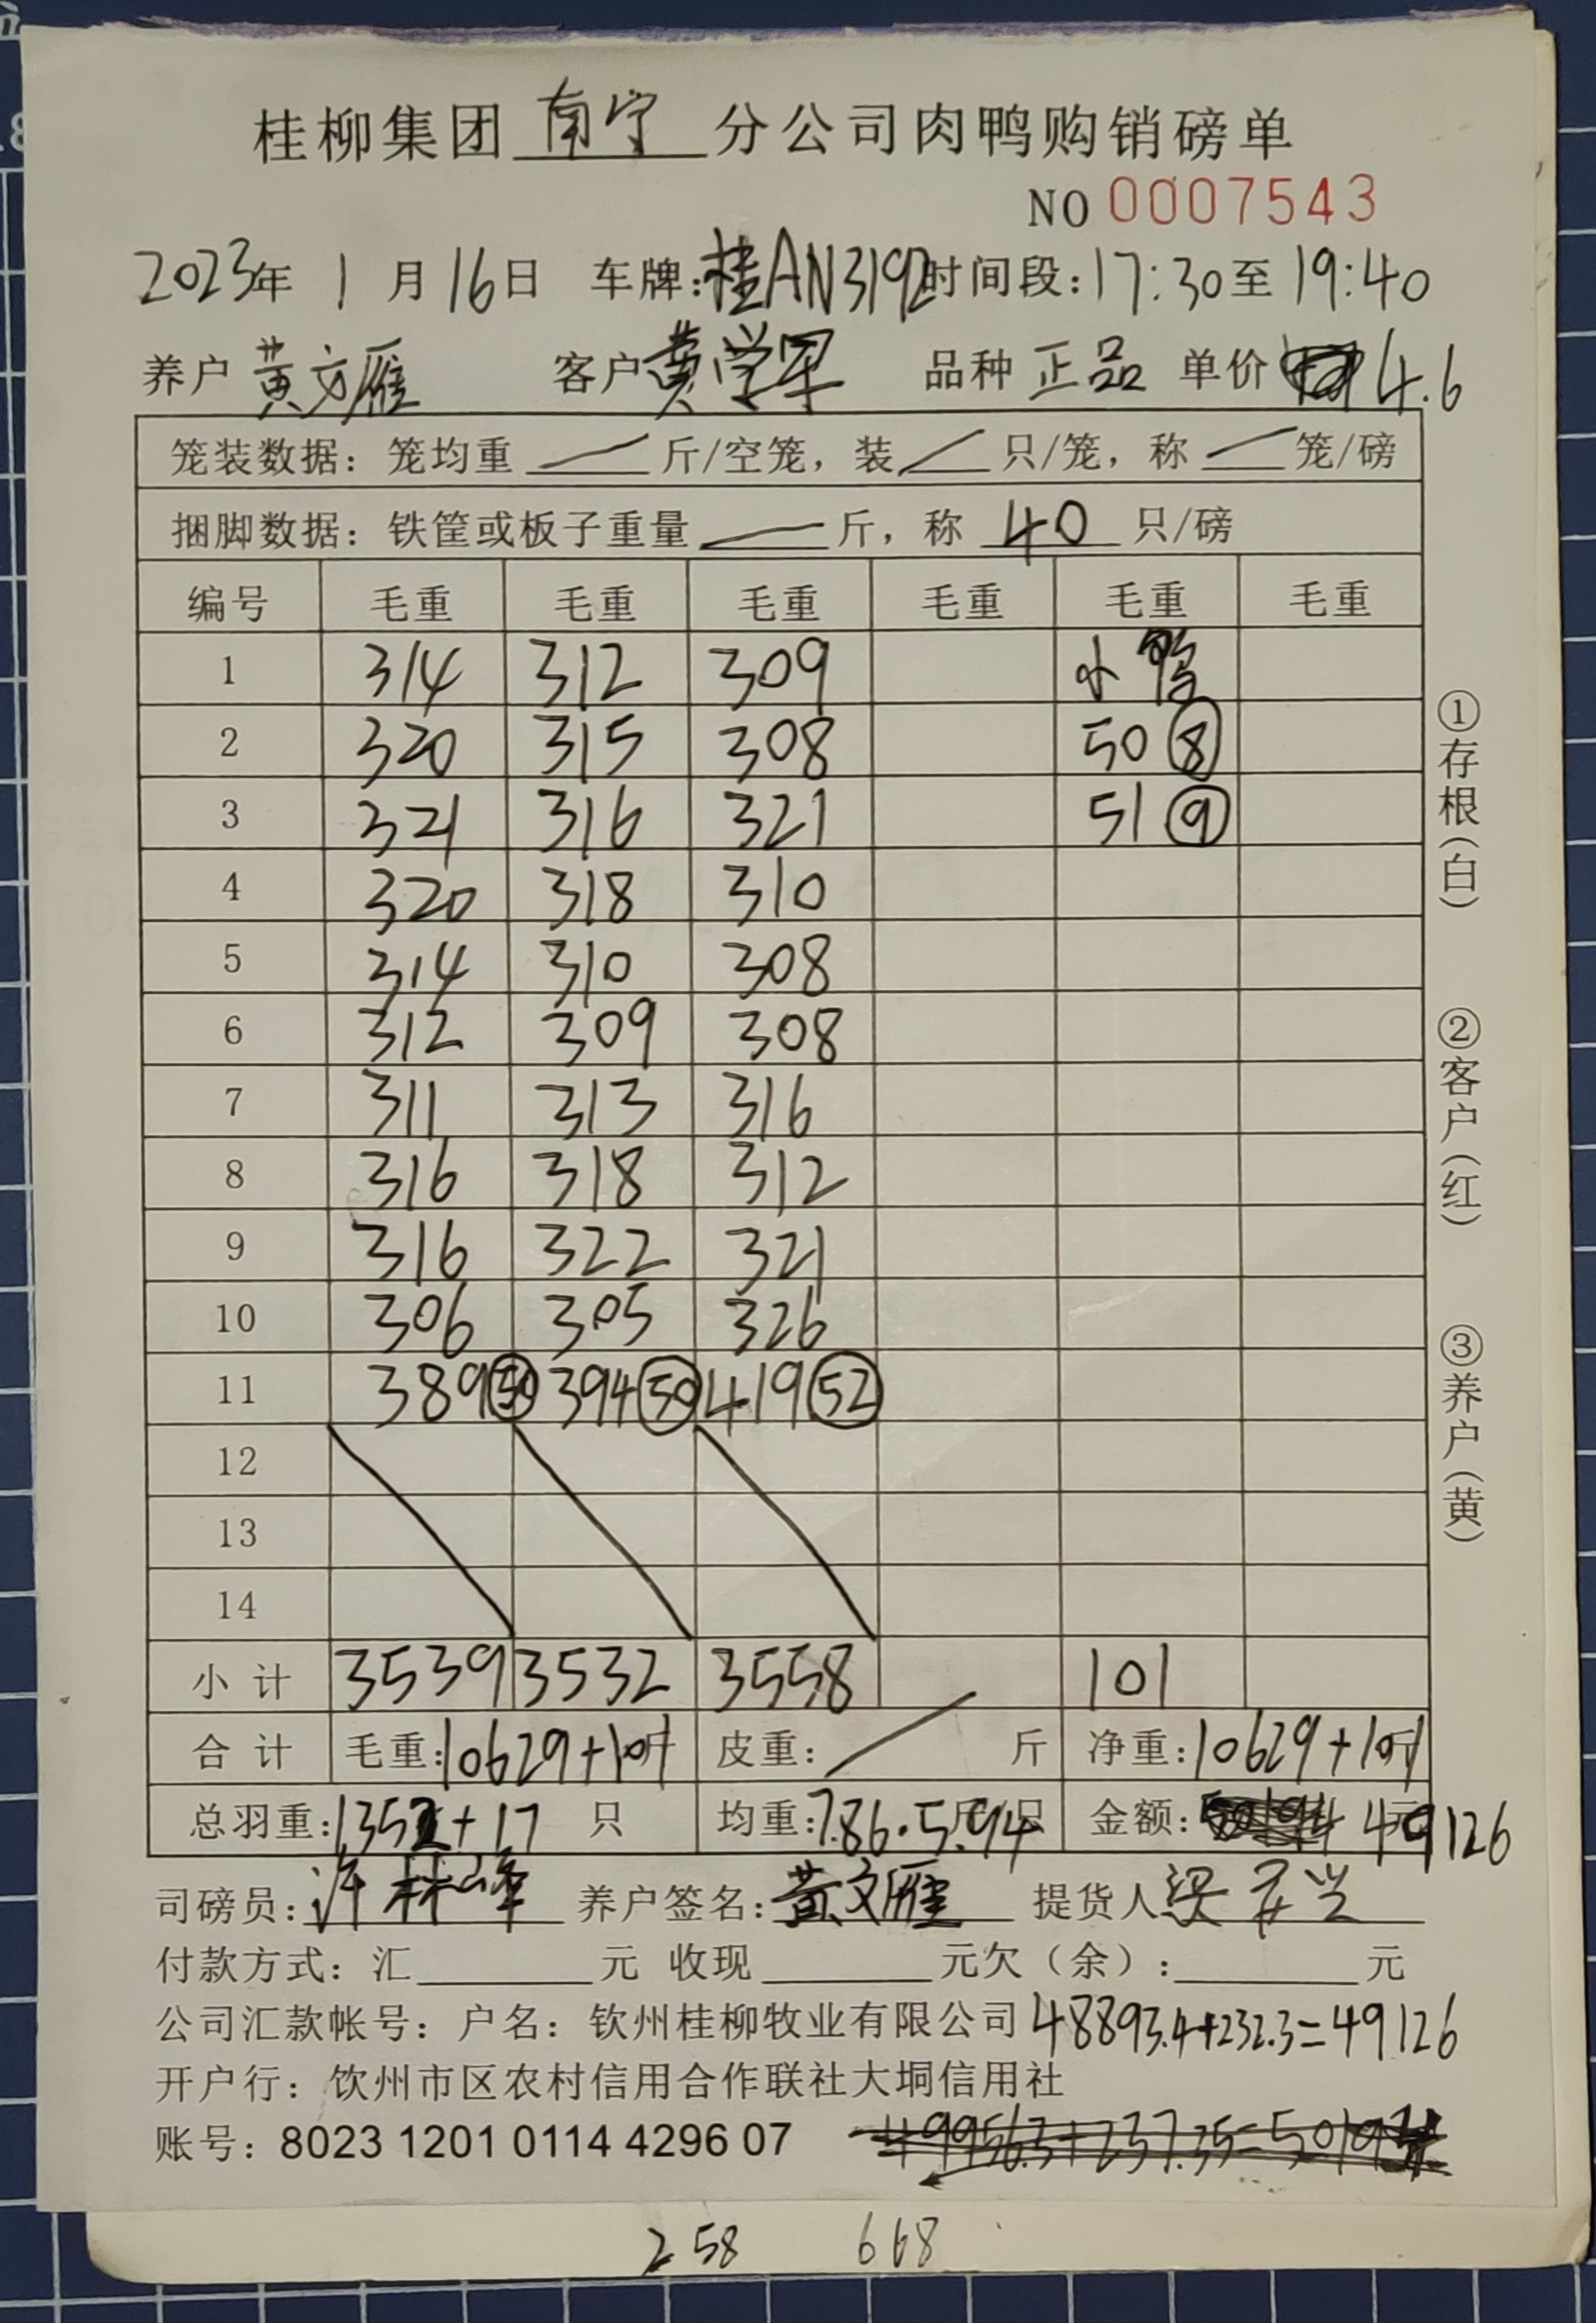 桂柳集团 南宁 分公司肉鸭购销磅单
NO 0007543
2023年 1 月 16日 车牌:桂AN3192 时间段:17:30至 19:40
养户 黄文雁 客户 黄学军 品种 正品 单价 4.6
笼装数据：笼均重 / 斤/空笼，装 / 只/笼，称 / 笼/磅
捆脚数据：铁筐或板子重量 / 斤，称 40 只/磅
编号 毛重 毛重 毛重 毛重 毛重 毛重
1 314 312 309 小鸭
2 320 315 308 50 ⑧
3 321 316 321 51 ⑨
4 320 318 310
5 314 310 308
6 312 309 308
7 311 313 316
8 316 318 312
9 316 322 321
10 306 305 326
11 389 ㊿ 394 ㊿ 419 (52)
12
13
14
小 计 3539 3532 3558 101
合 计 毛重:10629+101斤 皮重: / 斤 净重:10629+101斤
总羽重:1352+17 只 均重:7.86.5.94斤/只 金额: 49126元
司磅员: 许林峰 养户签名: 黄文雁 提货人
付款方式：汇 元 收现 元欠（余）: 元
公司汇款帐号：户名：钦州桂柳牧业有限公司 48893.4+232.3=49126
开户行：饮州市区农村信用合作联社大垌信用社
账号：8023 1201 0114 4296 07
258 668
①存根(白)
②客户(红)
③养户(黄)